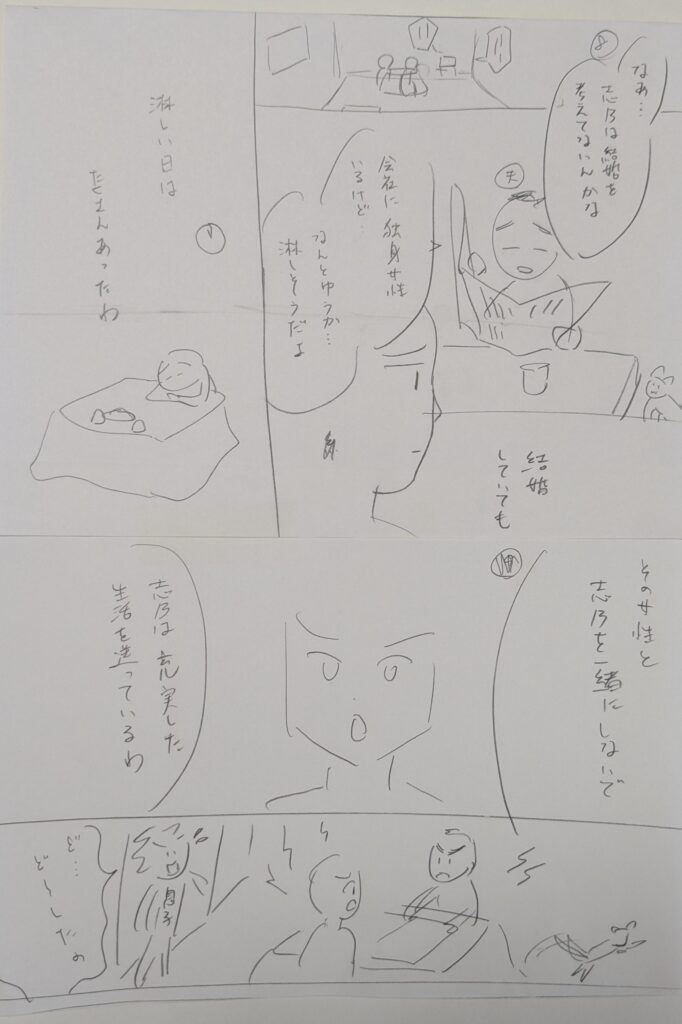 8
なあ…
志乃は結婚を
考えてないんかな
夫
会社に独身女性
いるけど…
なんとゆうか…
淋しそうだよ
結婚
していても
淋しい日は
たくさんあったわ
その女性と
志乃を一緒にしないで
志乃は充実した
生活を送っているわ
息子
ど…
どーしたの